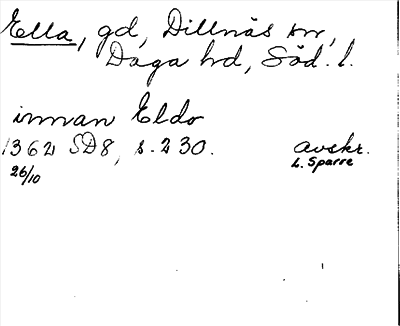 Ella, gd, Dillnäs sn,
Daga hd, Söd. l.
innan Eldo
1362 SD8, s. 230. avskr.
26/10 L. Sparre